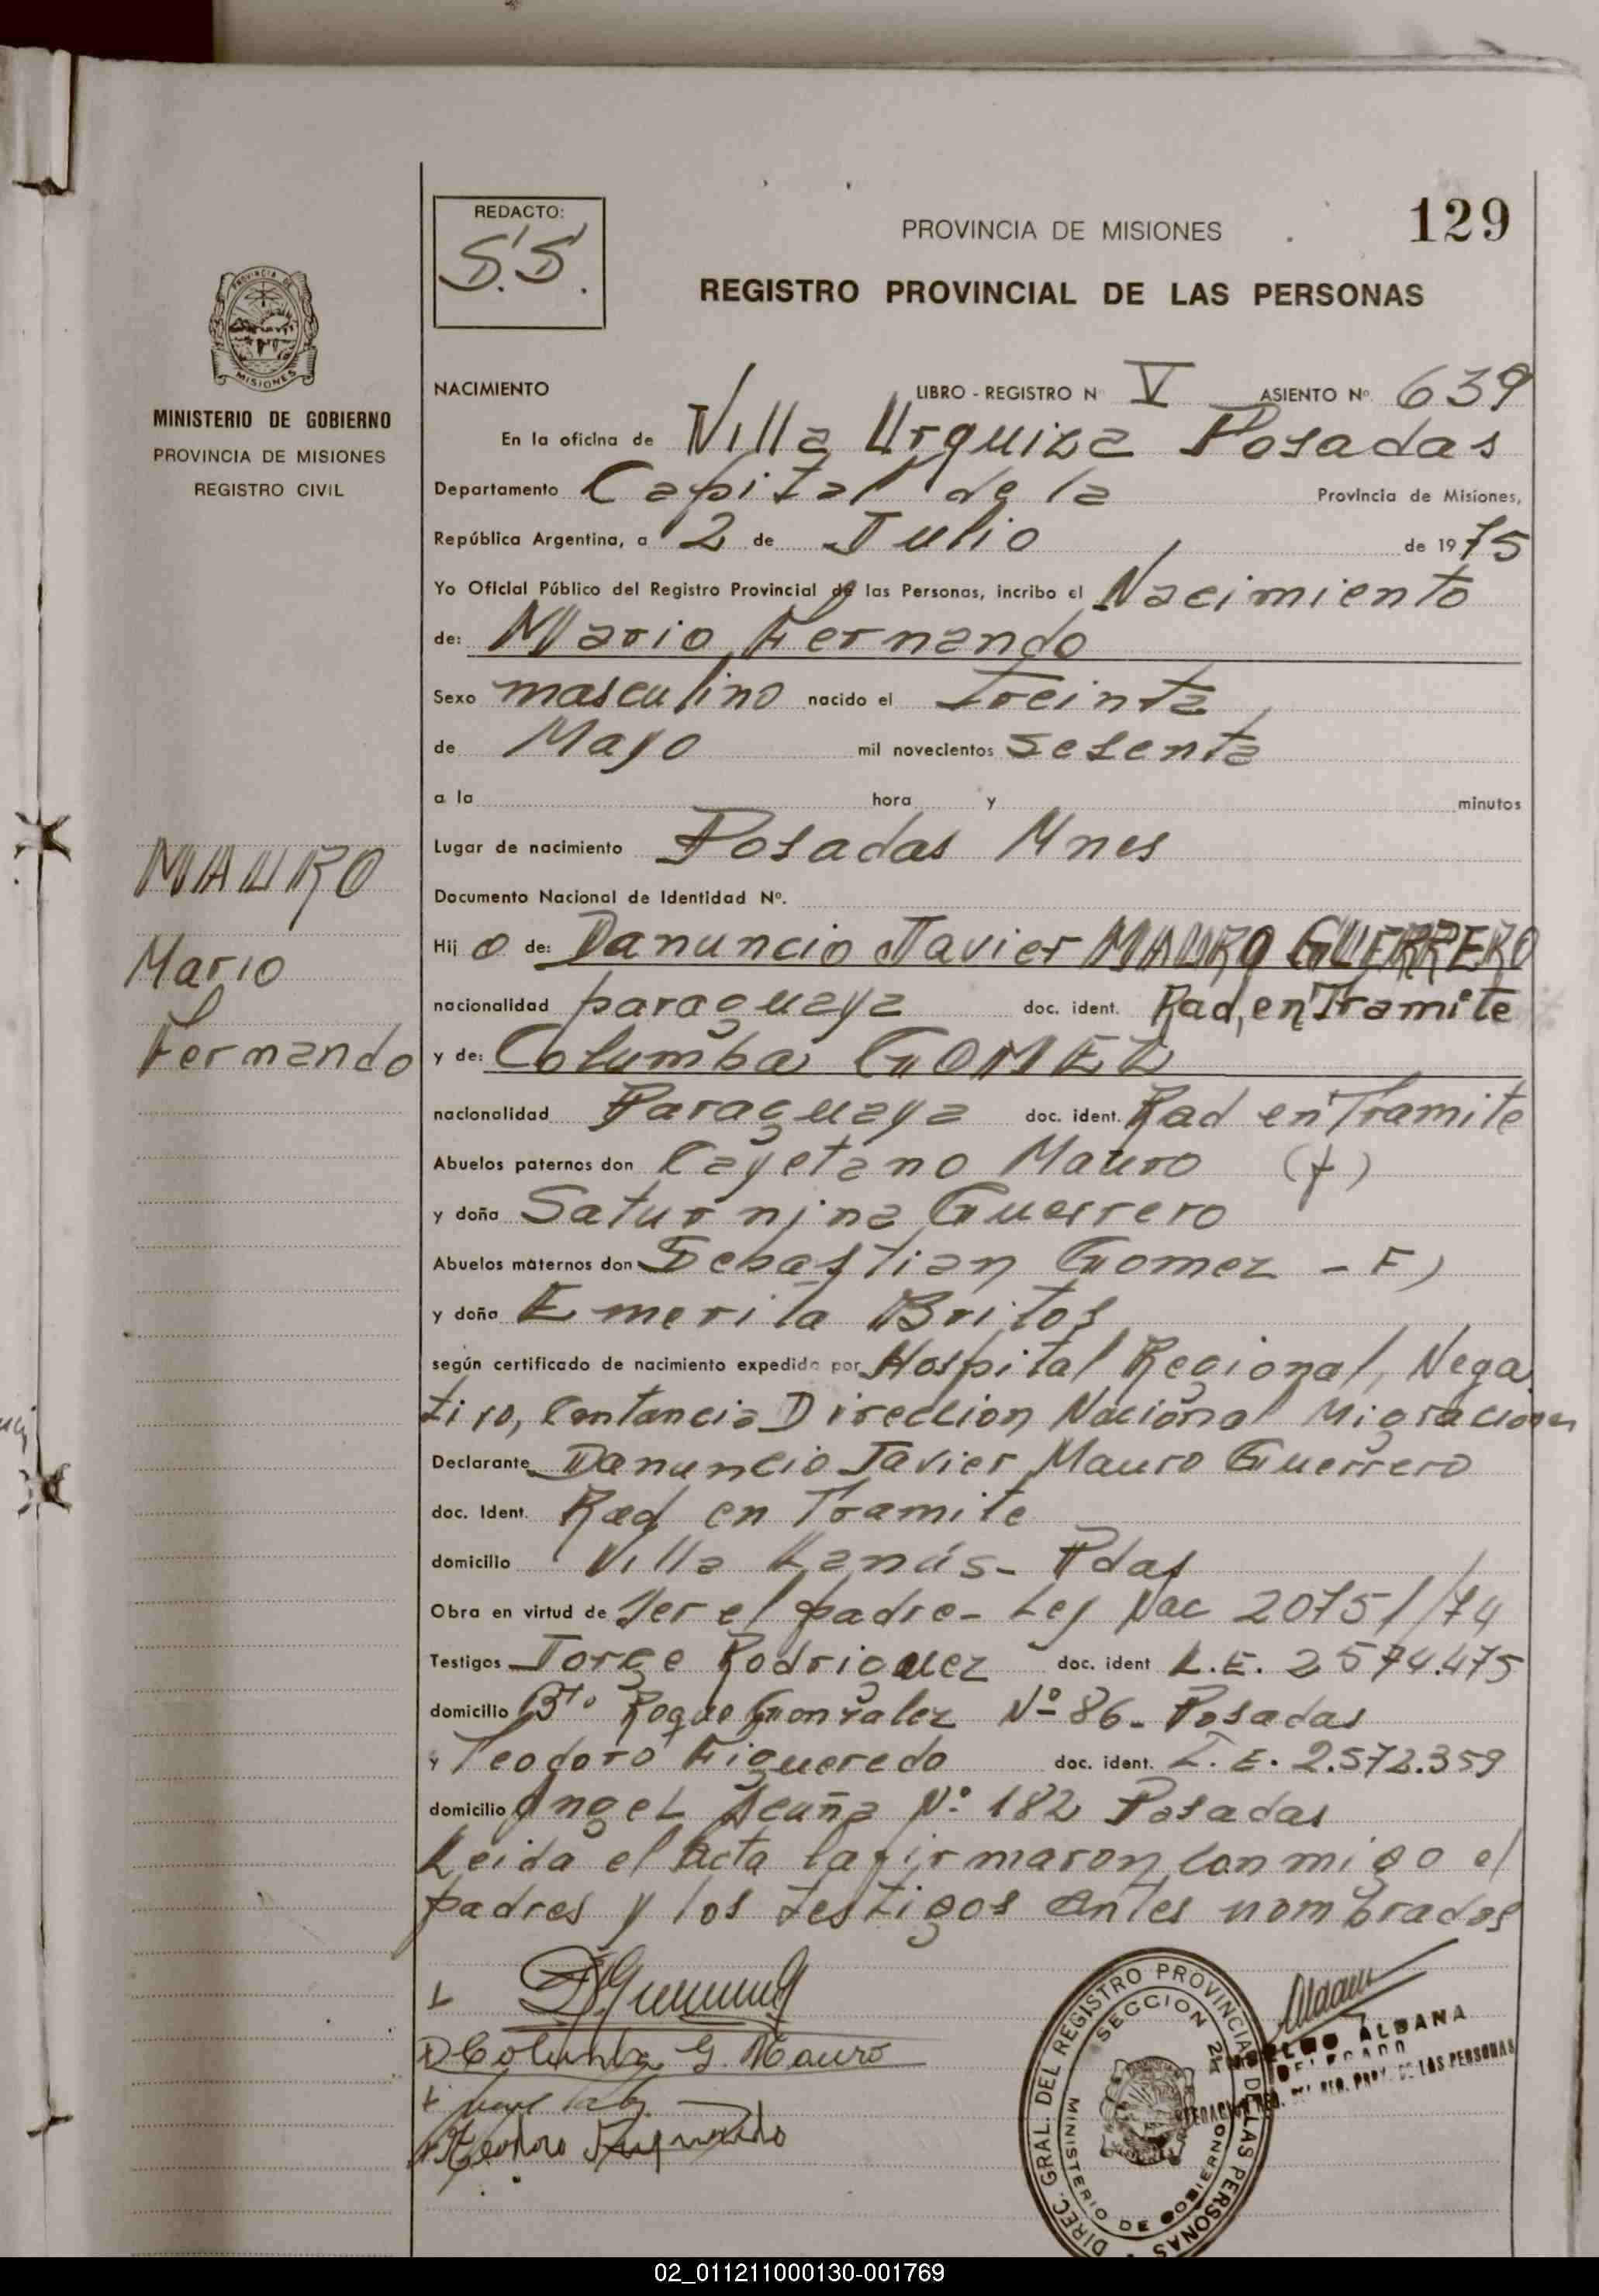 129
REDACTO:
S.S.
PROVINCIA DE MISIONES
REGISTRO PROVINCIAL DE LAS PERSONAS
PROVINCIA DE
MISIONES
MINISTERIO DE GOBIERNO
PROVINCIA DE MISIONES
REGISTRO CIVIL
NACIMIENTO LIBRO - REGISTRO Nº V ASIENTO Nº 639
En la oficina de Villa Urquiza Posadas
Departamento Capital de la Provincia de Misiones,
República Argentina, a 2 de Julio de 1975
Yo Oficial Público del Registro Provincial de las Personas, incribo el Nacimiento
de: Mario Fernando
Sexo masculino nacido el Treinta
de Mayo mil novecientos sesenta
a la hora y minutos
Lugar de nacimiento Posadas Mnes
Documento Nacional de Identidad Nº.
MAURO
Mario
Fernando
Hijo de: Danuncio Javier MAURO GUERRERO
nacionalidad paraguaya doc. ident. Rad, en Tramite
y de: Columba GOMEZ
nacionalidad Paraguaya doc. ident. Rad en Tramite
Abuelos paternos don Cayetano Mauro (f)
y doña Saturnina Guerrero
Abuelos maternos don Sebastian Gomez - F)
y doña Emerita Britos
según certificado de nacimiento expedido por Hospital Regional, Nega
tivo, Contancia Direccion Nacional Migraciones
Declarante Danuncio Javier Mauro Guerrero
doc. Ident. Rad en Tramite
domicilio Villa Lanús - Pdas
Obra en virtud de Ser el padre - Ley Nac 20751/74
Testigos Jorge Rodriguez doc. ident L.E. 2574.475
domicilio Bto Roque Gonzalez Nº 86 - Posadas
y Teodoro Figueredo doc. ident. L.E. 2.572.359
domicilio Angel Acuña Nº 182 Posadas
Leida el acta la firmaron conmigo el
padres y los testigos antes nombrados
Columba G. Mauro
Teodoro Figueredo
DIREC. GRAL. DEL REGISTRO PROVINCIAL DE LAS PERSONAS
SECCION 2ª
MINISTERIO DE GOBIERNO
ALDANA
DELEGADO
REG. PROV. DE LAS PERSONAS
02_011211000130-001769